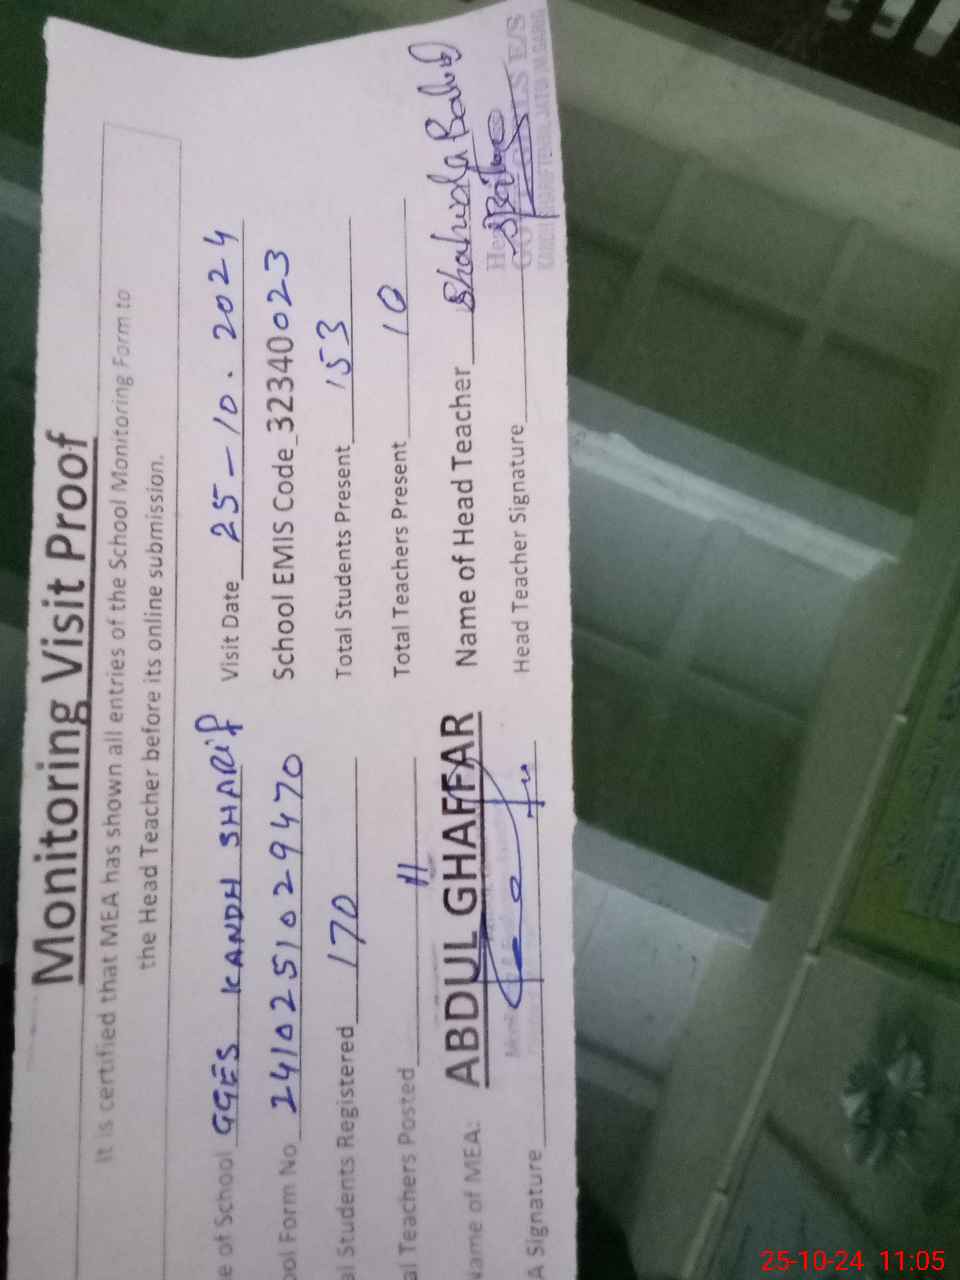 Monitoring Visit Proof
It is certified that MEA has shown all entries of the School Monitoring Form to
the Head Teacher before its online submission.
e of School GGES KANDH SHARIF Visit Date 25-10.2024
ool Form No 2410251029470 School EMIS Code 32340023
al Students Registered 170 Total Students Present 153
al Teachers Posted 11 Total Teachers Present 10
Name of MEA: ABDUL GHAFFAR Name of Head Teacher Shahida
A Signature Head Teacher Signature
25-10-24 11:05